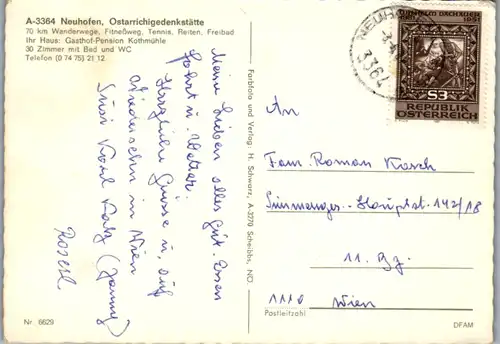 A-3364 Neuhofen, Ostarrichigedenkstätte
70 km Wanderwege, Fitneßweg, Tennis, Reiten, Freibad
Ihr Haus: Gasthof-Pension Kothmühle
30 Zimmer mit Bad und WC
Telefon (0 74 75) 21 12
Meine Lieben alles gut. Essen
Fahrt u. Wetter.
Herzliche Grüsse u. auf
Wiedersehn in Wien
Susi
Roserl
Nr. 6629
Farbfoto und Verlag: H. Schwarz, A-3270 Scheibbs, NÖ.
3364
S3
REPUBLIK
ÖSTERREICH
An
Fam. Roman
Simmeringer-Hauptst. 142/18
11. Bz.
1110 Wien
Postleitzahl
DFAM